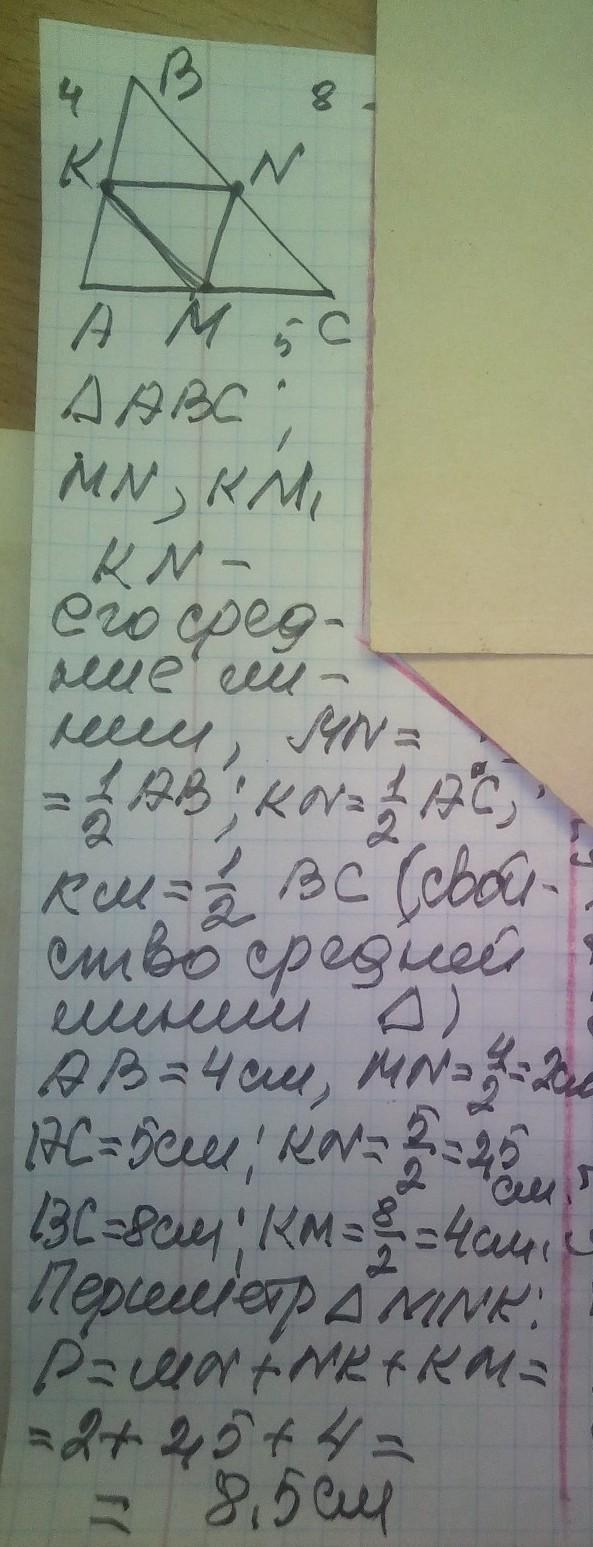 4 B 8
K N
A M 5 C
Δ ABC;
MN, KM,
KN –
его сред-
ние ли-
нии, MN =
= 1/2 AB; KN = 1/2 AC,
KM = 1/2 BC (свой-
ство средней
линии Δ)
AB = 4 см, MN = 4/2 = 2 см
AC = 5 см; KN = 5/2 = 2,5
см.
BC = 8 см; KM = 8/2 = 4 см.
Периметр Δ MNK:
P = MN + NK + KM =
= 2 + 2,5 + 4 =
= 8,5 см